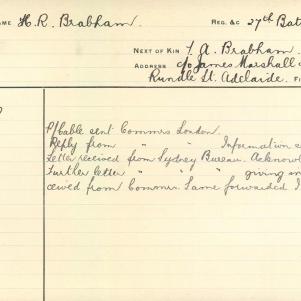 AME H. R. Brabham. REG. &C 27th Bat
NEXT OF KIN T. A. Brabham.
ADDRESS c/o James Marshall &
Rundle St. Adelaide. F
P/bable sent Commrs London.
Reply from " " Information
Letter received from Sydney Bureau. Acknowl
Further letter " " " giving
ceived from Commrs. Same forwarded